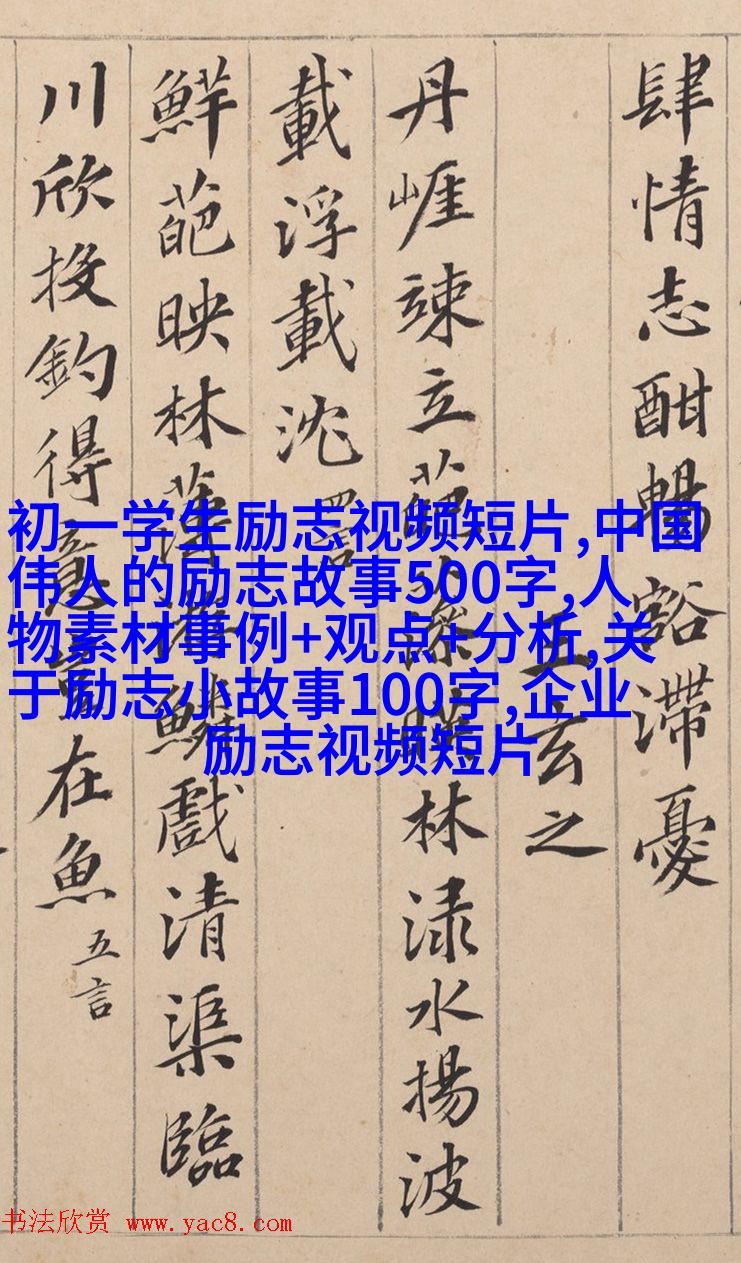 肆情志酣暢豁滯憂
王玄之
丹崖竦立葩藻暎林渌水揚波
載浮載沈 四言
鮮葩映林薄游鱗戲清渠臨
川欣投釣得意豈在魚 五言
初一学生励志视频短片,中国
伟人的励志故事500字,人
物素材事例+观点+分析,关
于励志小故事100字,企业
励志视频短片
书法欣赏 www.yac8.com